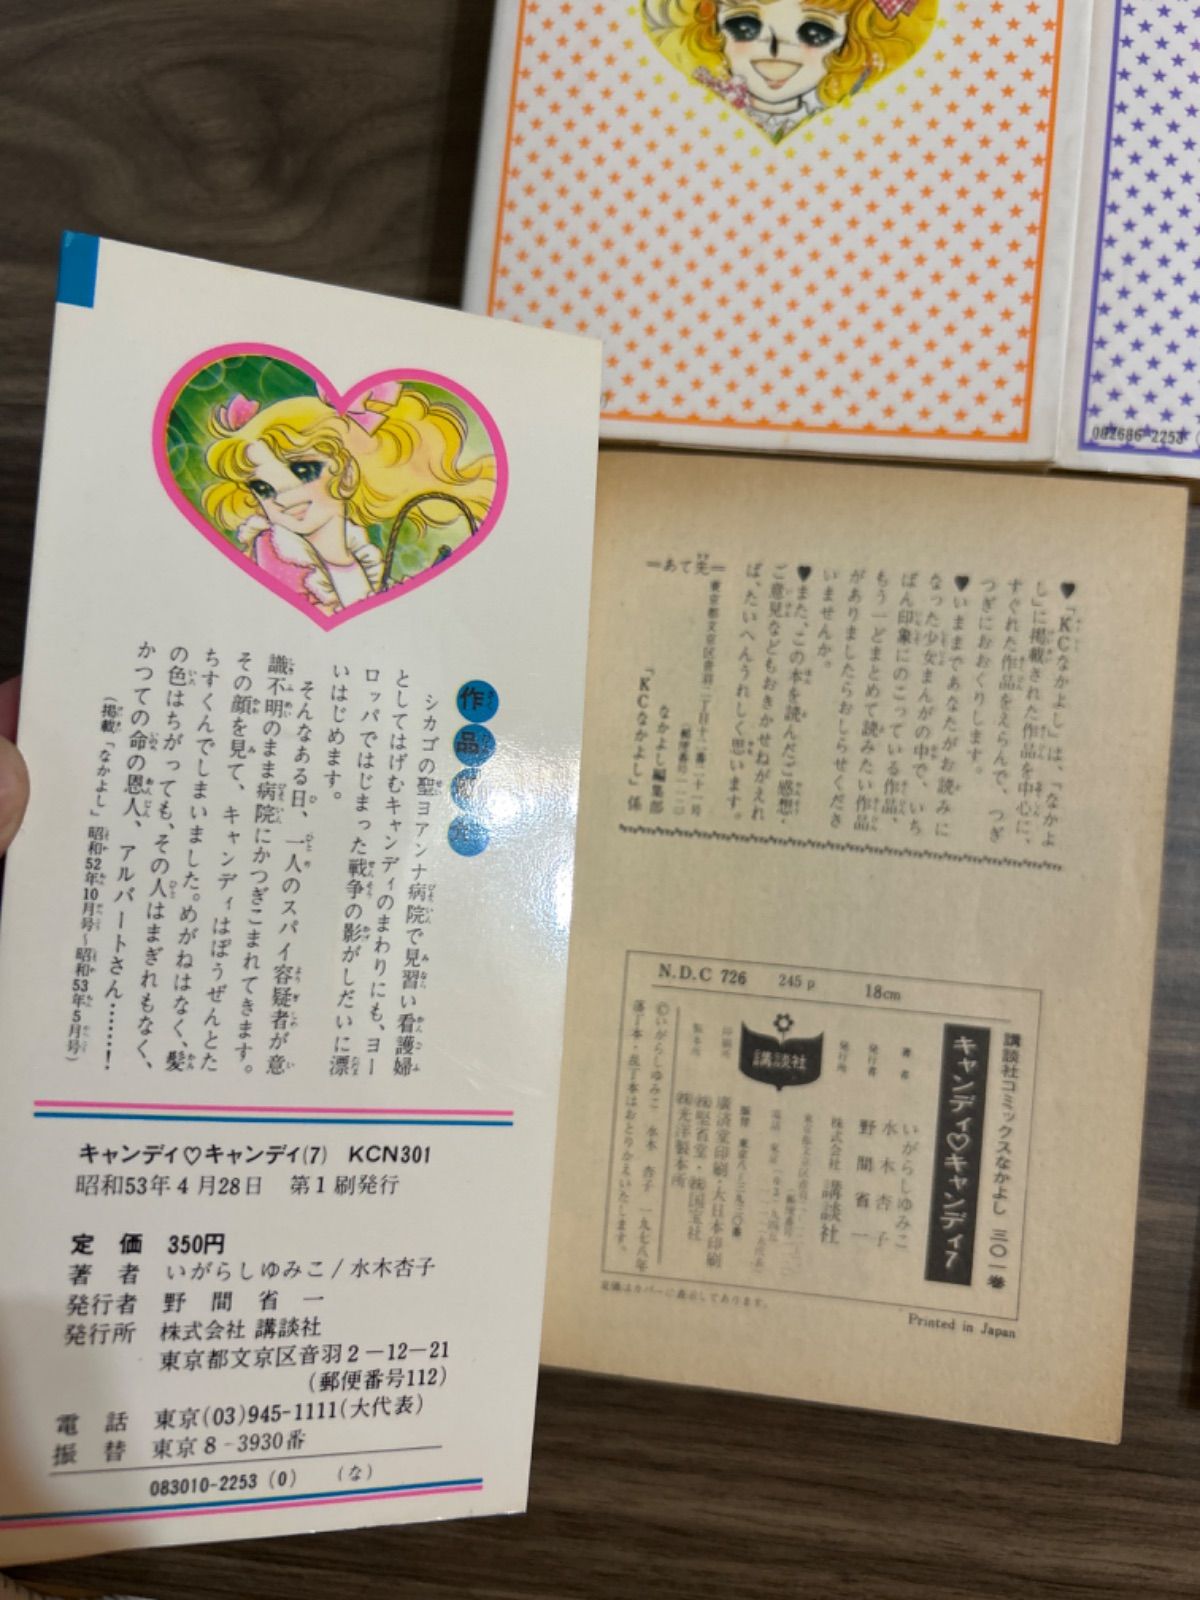 作品紹介
シカゴの聖ヨアンナ病院で見習い看護婦
としてはげむキャンディのまわりにも、ヨー
ロッパではじまった戦争の影がしだいに漂
いはじめます。
そんなある日、一人のスパイ容疑者が意
識不明のまま病院にかつぎこまれてきます。
その顔を見て、キャンディはぼうぜんとた
ちすくんでしまいました。めがねはなく、髪
の色はちがっても、その人はまぎれもなく、
かつての命の恩人、アルバートさん……！
(掲載「なかよし」昭和52年10月号〜昭和53年5月号)
キャンディ♡キャンディ(7) KCN301
昭和53年4月28日 第1刷発行
定価 350円
著者 いがらしゆみこ/水木杏子
発行者 野間省一
発行所 株式会社 講談社
東京都文京区音羽2-12-21
(郵便番号112)
電話 東京(03)945-1111(大代表)
振替 東京8-3930番
083010-2253(0) (な)
082686-2253
♥「KCなかよし」は、「なかよ
し」に掲載された作品を中心に、
すぐれた作品をえらんで、つぎ
つぎにおおくりします。
♥いままであなたがお読みに
なった少女まんがの中で、いち
ばん印象にのこっている作品、
もう一どまとめて読みたい作品
がありましたらおしらせくださ
いませんか。
♥また、この本を読んだご感想、
ご意見などもおきかせねがえれ
ば、たいへんうれしく思います。
＝あて先＝
東京都文京区音羽二丁目十二番二十一号
(郵便番号一一二)
なかよし編集部
「KCなかよし」係
N.D.C 726 245p 18cm
講談社コミックスなかよし 三〇一巻
キャンディ♡キャンディ7
著者 いがらしゆみこ
水木杏子
発行者 野間省一
発行所 株式会社 講談社
講談社
印刷所 廣済堂印刷・大日本印刷
製本所 ㈱堅省堂・㈱国宝社
㈱光洋製本所
©いがらしゆみこ 水木杏子 一九七八年
落丁本・乱丁本はおとりかえいたします。
定価はカバーに表示してあります。
Printed in Japan